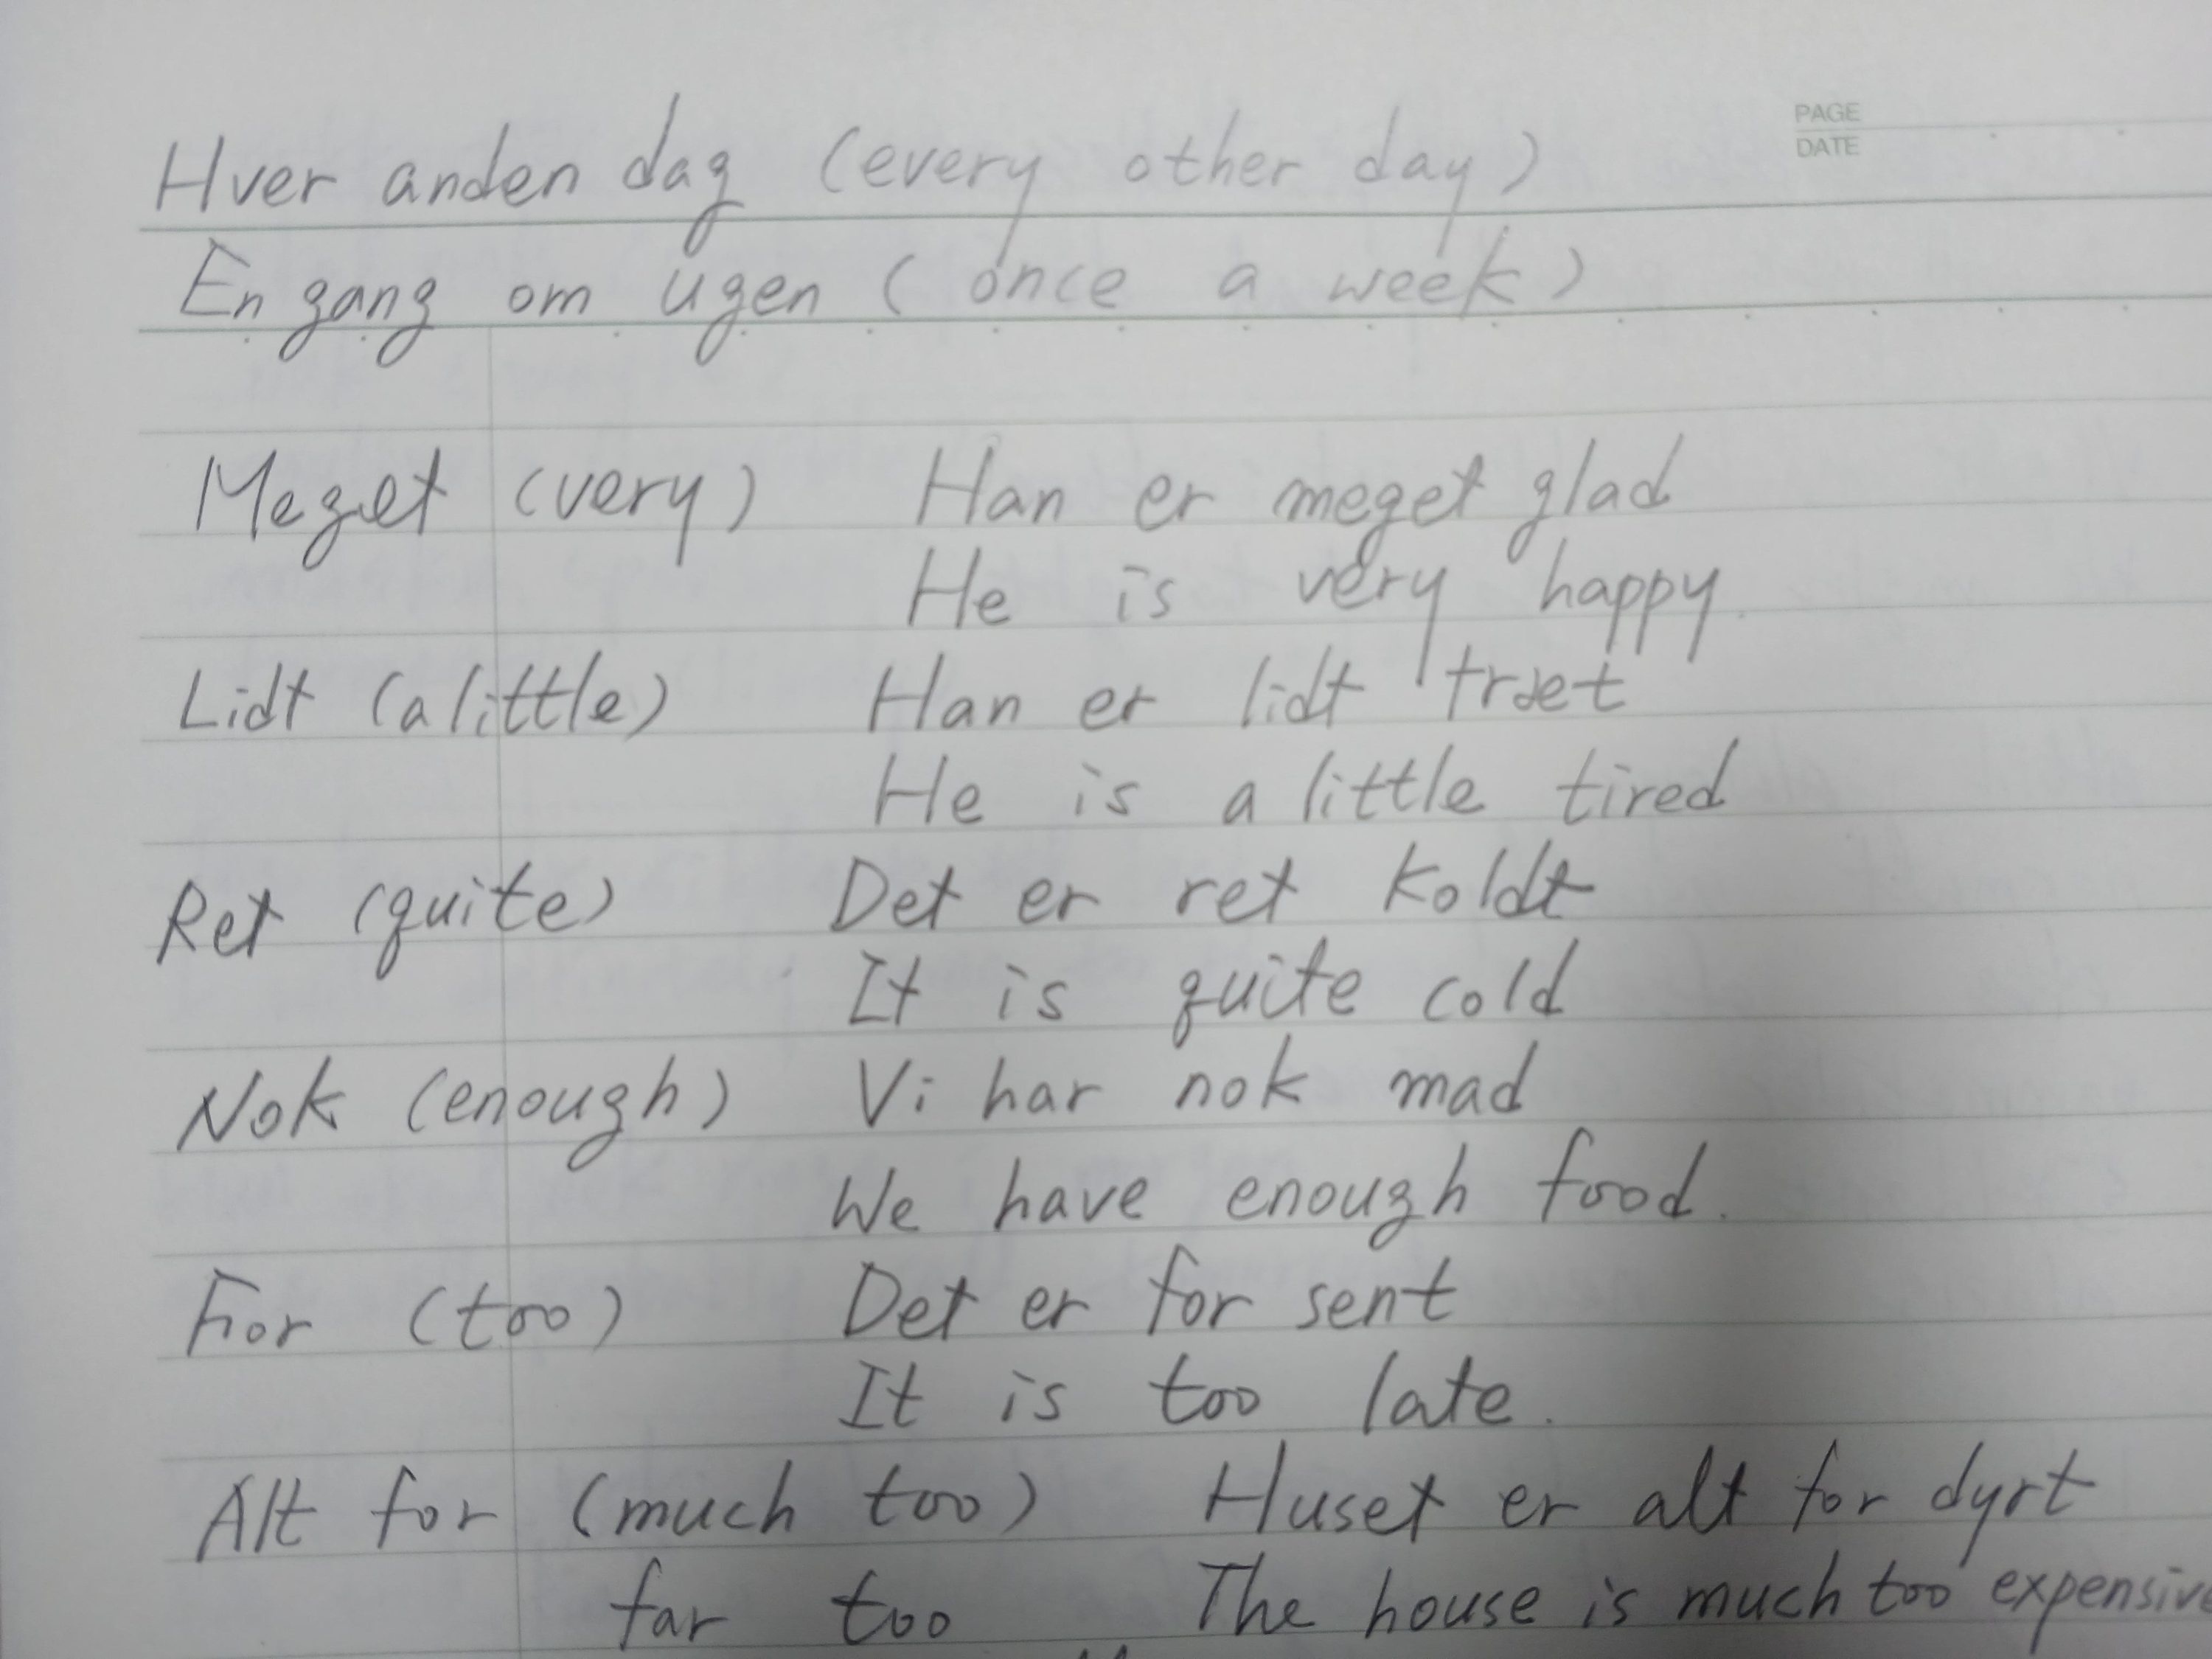 PAGE
DATE
Hver anden dag (every other day)
En gang om ugen (once a week)
Meget (very) Han er meget glad
He is very happy.
Lidt (a little) Han er lidt træt
He is a little tired
Ret (quite) Det er ret koldt
It is quite cold
Nok (enough) Vi har nok mad
We have enough food.
For (too) Det er for sent
It is too late.
Alt for (much too) Huset er alt for dyrt
far too The house is much too expensive